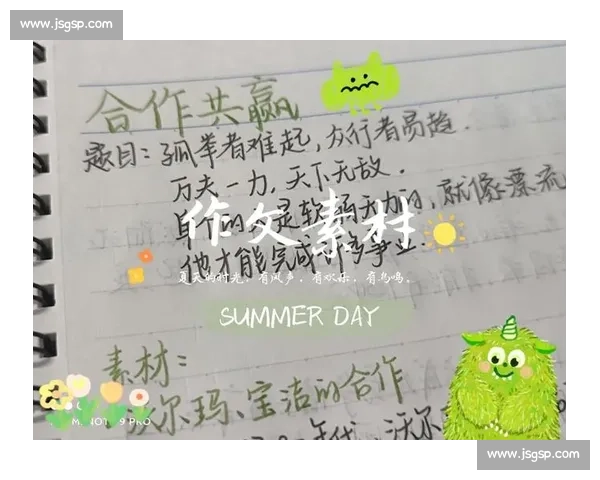 www.jsgsp.com
合作共赢
题目:孤举者难起,众行者易趋.
万夫一力,天下无敌.
单个的 是软弱无力的,就像漂流
作文素材
他才能完成许多事业.
夏天的时光,有风声,有欢乐,有鸟鸣。
SUMMER DAY
素材:
沃尔玛、宝洁的合作
MI NOTE 9 PRO
年代,沃尔
www.jsgsp.com